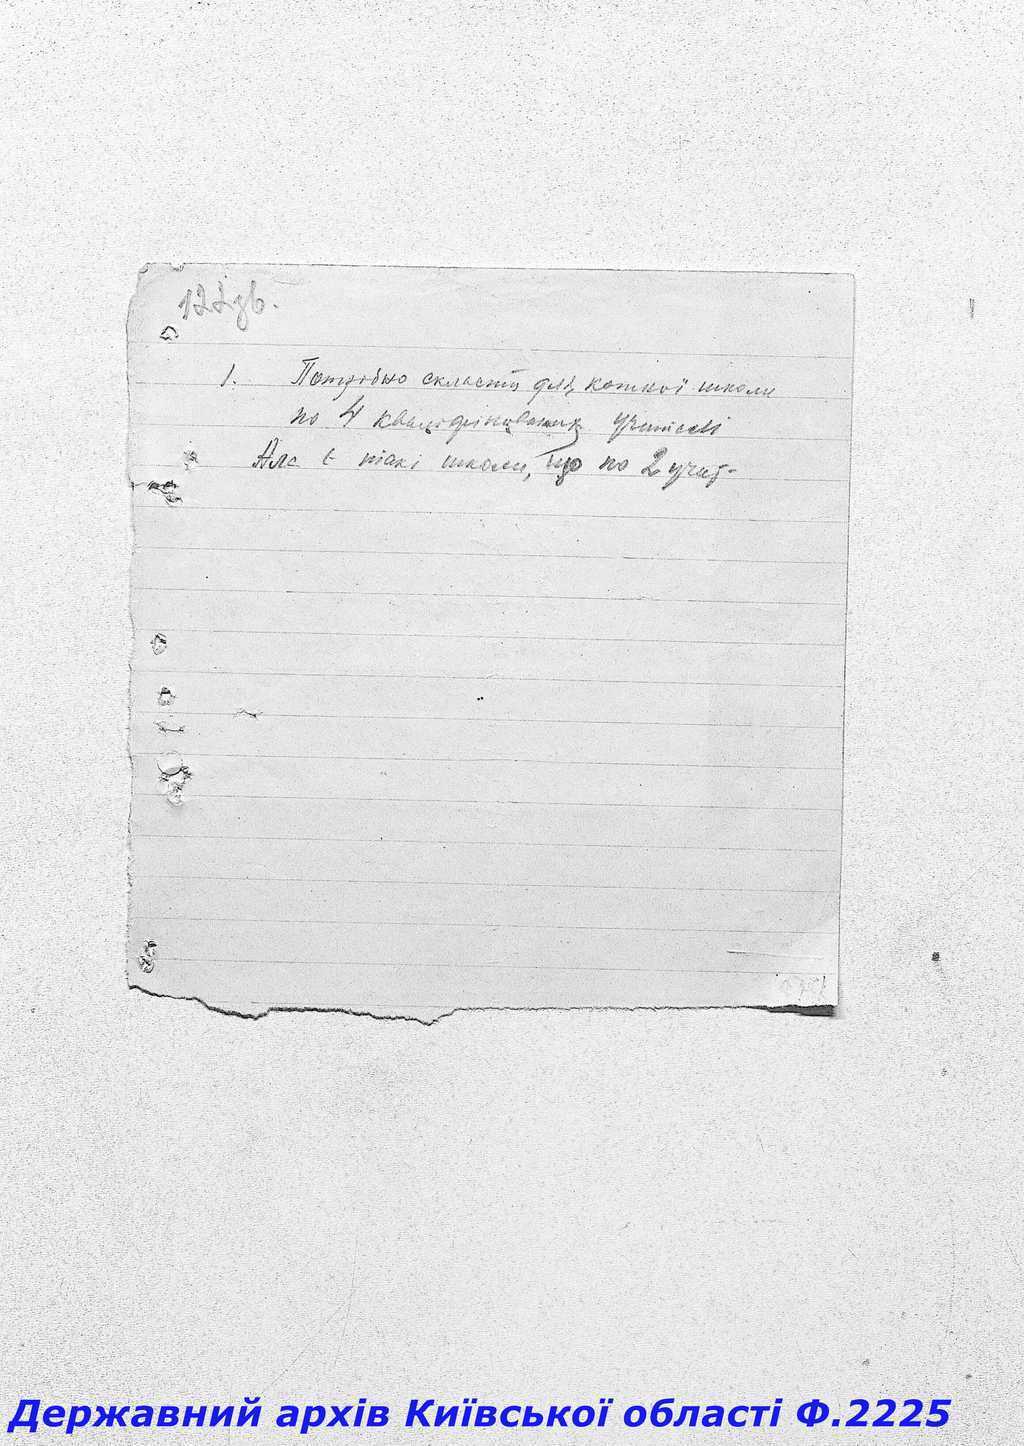 122зв.
1. Потрібно скласти для кожної школи
по 4 кваліфікованих учителі
Але є такі школи, що по 2 учит-
Державний архів Київської області Ф.2225